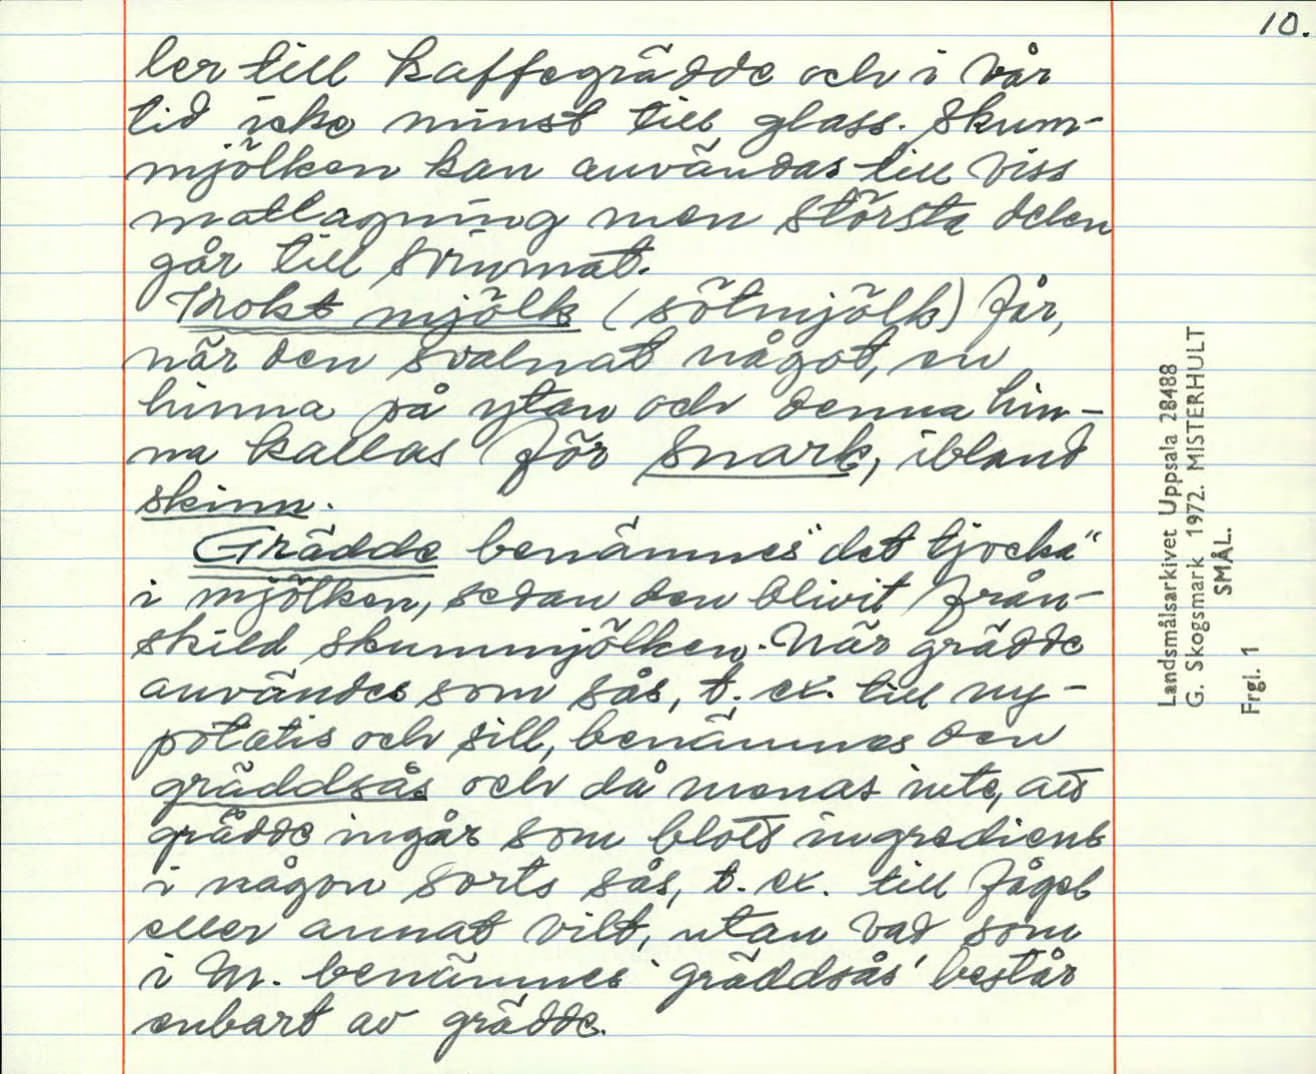 10.
ler till kaffegrädde och i vår
tid icke minst till glass. Skum-
mjölken kan användas till viss
matlagning men största delen
går till svinmat.
Kokt mjölk (sötmjölk) får,
när den svalnat något, en
hinna på ytan och denna hin-
na kallas för snark, ibland
skinn.
Grädde benämnes "det tjocka"
i mjölken, sedan den blivit från-
skild skummjölken. När grädde
användes som sås, t. ex. till ny-
potatis och sill, benämnes den
gräddsås och då menas inte, att
grädde ingår som blott ingrediens
i någon sorts sås, t. ex. till fågel
eller annat vilt, utan vad som
i M. benämnes 'gräddsås' består
enbart av grädde.
Landsmålsarkivet Uppsala 28488
G. Skogsmark 1972. MISTERHULT
SMÅL.
Frgl. 1